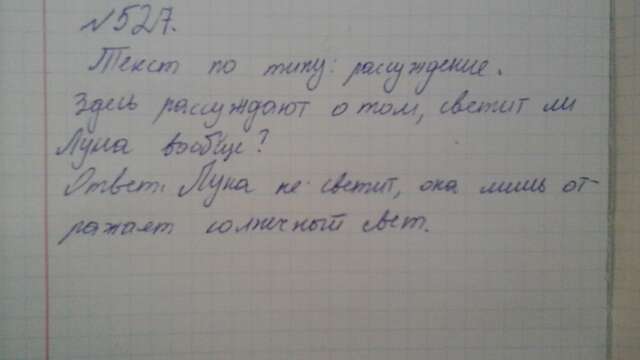 №527.
Текст по типу: рассуждение.
Здесь рассуждают о том, светит ли
Луна вообще?
Ответ: Луна не светит, она лишь от
ражает солнечный свет.